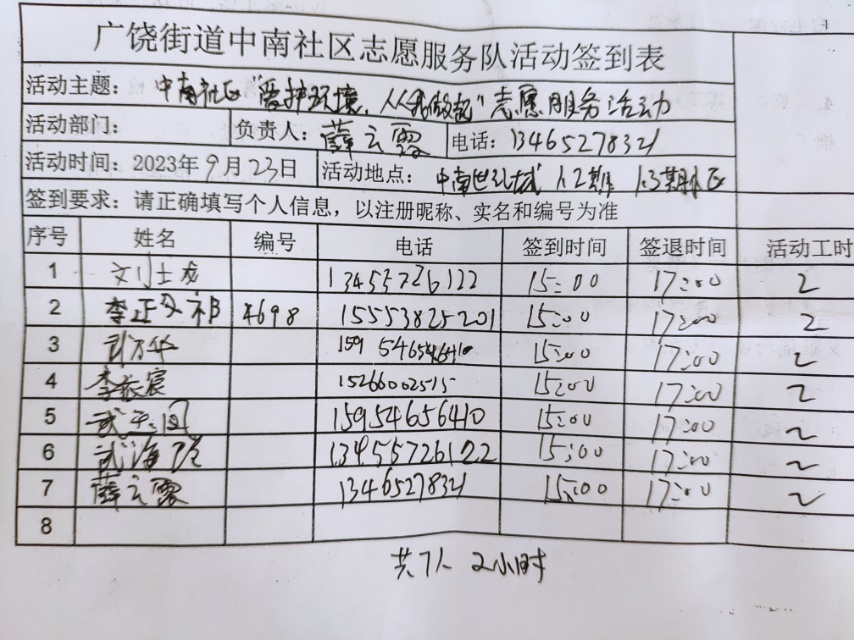 广饶街道中南社区志愿服务队活动签到表
活动主题: 中南社区"爱护环境,从我做起"志愿服务活动
活动部门: 负责人: 薛云霞 电话: 13465278321
活动时间: 2023年9月23日 活动地点: 中南世纪城 1.2期 1.3期小区
签到要求: 请正确填写个人信息,以注册昵称、实名和编号为准
序号 姓名 编号 电话 签到时间 签退时间 活动工时
1 刘士成 13455726122 15:00 17:00 2
2 4698 15553825201 15:00 17:00 2
3 15:00 17:00 2
4 李振宸 15266002515 15:00 17:00 2
5 15954656410 15:00 17:00 2
6 13455726122 15:00 17:00 2
7 薛云霞 13465278321 15:00 17:00 2
8
共7人 2小时